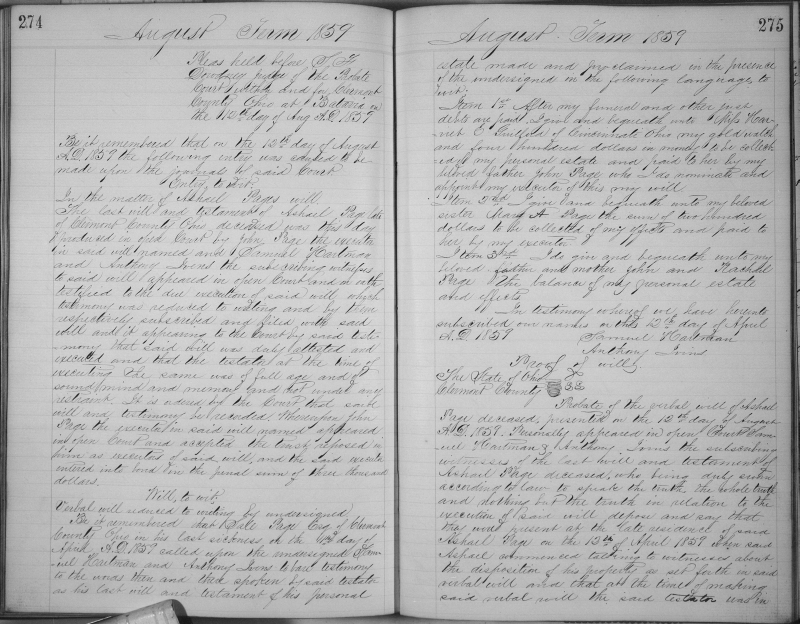 274
August Term 1859
Pleas held before
Dowdney judge of the Probate
Court within and for Clermont
County Ohio at Batavia on
the 12th day of Aug A.D. 1859
Be it remembered that on the 12th day of August
A.D. 1859 the following entry was caused to be
made upon the journal of said Court
Entry, to wit:
In the matter of Asahael Pages will.
The last will and testament of Ashael Page late
of Clermont County Ohio, deceased was this day
produced in open Court by John Page the executor
in said will named and Samuel Hartman
and Anthony Ivins the subscribing witnesses
to said will, appeared in open Court and on oath
testified to the due execution of said will, which
testimony was reduced to writing and by them
respectively subscribed and filed with said
will and it appearing to the Court by said testi-
mony that said will was duly attested and
executed and that the testator at the time of
executing the same was of full age and of
sound mind and memory and not under any
restraint. It is ordered by the Court that said
will and testimony be recorded. Thereupon John
Page the executor in said will named appeared
in open Court and accepted the trust reposed in
him as executor of said will, and the said executor
entered into bond in the penal sum of three thousand
dollars.
Will, to wit:
Verbal will reduced to writing by undersigned
Be it remembered that Page Esq. of Clermont
County Ohio in his last sickness on the day of
April A.D. 1859 called upon the undersigned Sam-
uel Hartman and Anthony Ivins to bear testimony
to the words then and there spoken by said testator
as his last will and testament of his personal
275
August Term 1859
estate made and proclaimed in the presence
of the undersigned in the following language, to
wit:
Item 1st After my funeral and other just
debts are paid I give and bequeath unto Miss Har-
riet C Guilford of Cincinnati Ohio my gold watch
and four hundred dollars in money to be collect-
ed of my personal estate and paid to her by my
beloved father John Page who I do nominate and
appoint my executor of this my will
Item 2nd I give and bequeath unto my beloved
sister Mary A Page the sum of two hundred
dollars to be collected of my effects and paid to
her by my executor
Item 3rd I do give and bequeath unto my
beloved father and mother John and Rachel
Page the balance of my personal estate
and effects
In testimony whereof we have hereunto
subscribed our names on this 12th day of April
A.D. 1859
Samuel Hartman
Anthony Ivins
Proof of will
The State of Ohio
Clermont County SS
Probate of the verbal will of Ashael
Page deceased, presented on the 12th day of August
A.D. 1859. Personally appeared in open Court Sam-
uel Hartman & Anthony Ivins the subscribing
witnesses of the last will and testament of
Asahael Page deceased, who being duly sworn
according to law to speak the truth the whole truth
and nothing but the truth in relation to the
execution of said will depose and say that
they were present at the late residence of said
Ashael Page on the 12th of April 1859 when said
Ashael commenced talking to witnesses about
the disposition of his property as set forth in said
verbal will and that at the time of making
said verbal will the said testator was in